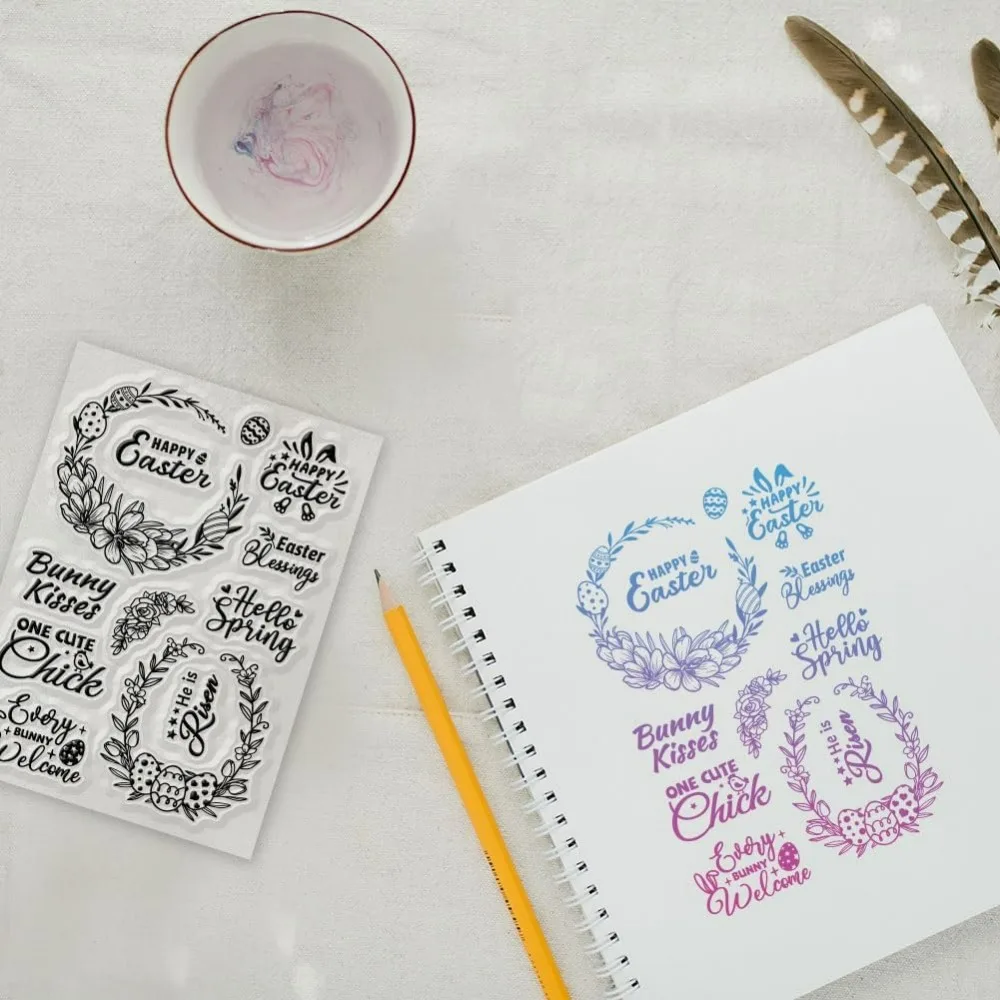 HAPPY
Easter
HAPPY
Easter
Easter
Blessings
Bunny
Kisses
Hello
Spring
ONE CUTE
Chick
He is
Risen
Every
BUNNY
Welcome
HAPPY
Easter
HAPPY
Easter
Easter
Blessings
Hello
Spring
Bunny
Kisses
ONE CUTE
Chick
He is
Risen
Every
BUNNY
Welcome